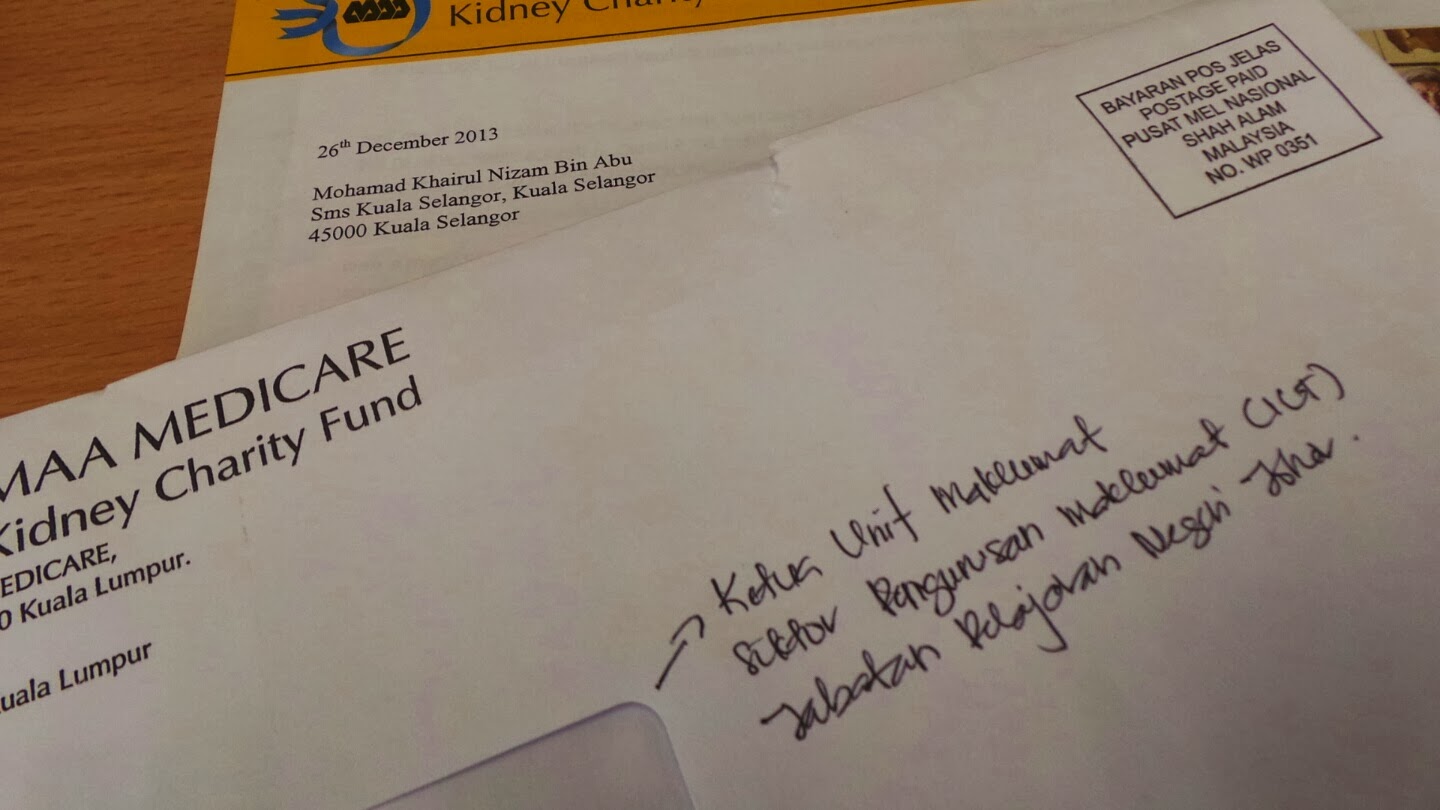 Kidney Charity
26th December 2013
Mohamad Khairul Nizam Bin Abu
Sms Kuala Selangor, Kuala Selangor
45000 Kuala Selangor
BAYARAN POS JELAS
POSTAGE PAID
PUSAT MEL NASIONAL
SHAH ALAM
MALAYSIA
NO. WP 0351
MAA MEDICARE
Kidney Charity Fund
EDICARE,
0 Kuala Lumpur.
uala Lumpur
Ketua Unit Maklumat
Sektor Pengurusan Maklumat (ICT)
Jabatan Pelajaran Negeri Johor.